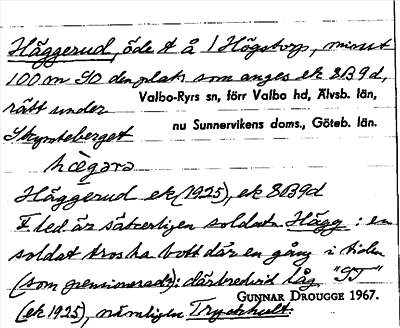 Häggerud, öde t å 1 Högstorp, minst
100 m SO den plats som anges ek 8B9d,
rätt under
Valbo-Ryrs sn, förr Valbo hd, Älvsb. län,
Skymteberget
nu Sunnervikens doms., Göteb. län.
hægəra
Häggerud ek (1925), ek 8B9d
F led är säkerligen soldatn Hägg: en
soldat
ha bott där en gång i tiden
(som pensionerad): därbredvid låg "ST"
(ek 1925), nämligen Tryckhult.
GUNNAR DROUGGE 1967.